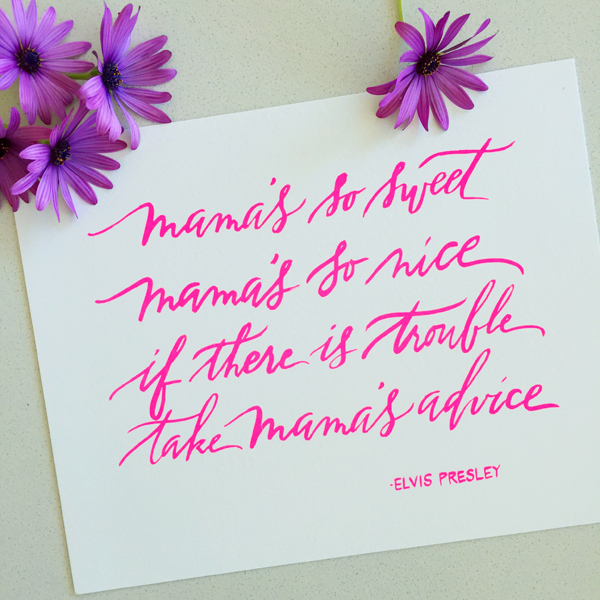 mama's so sweet
mama's so nice
if there is trouble
take mama's advice
-ELVIS PRESLEY